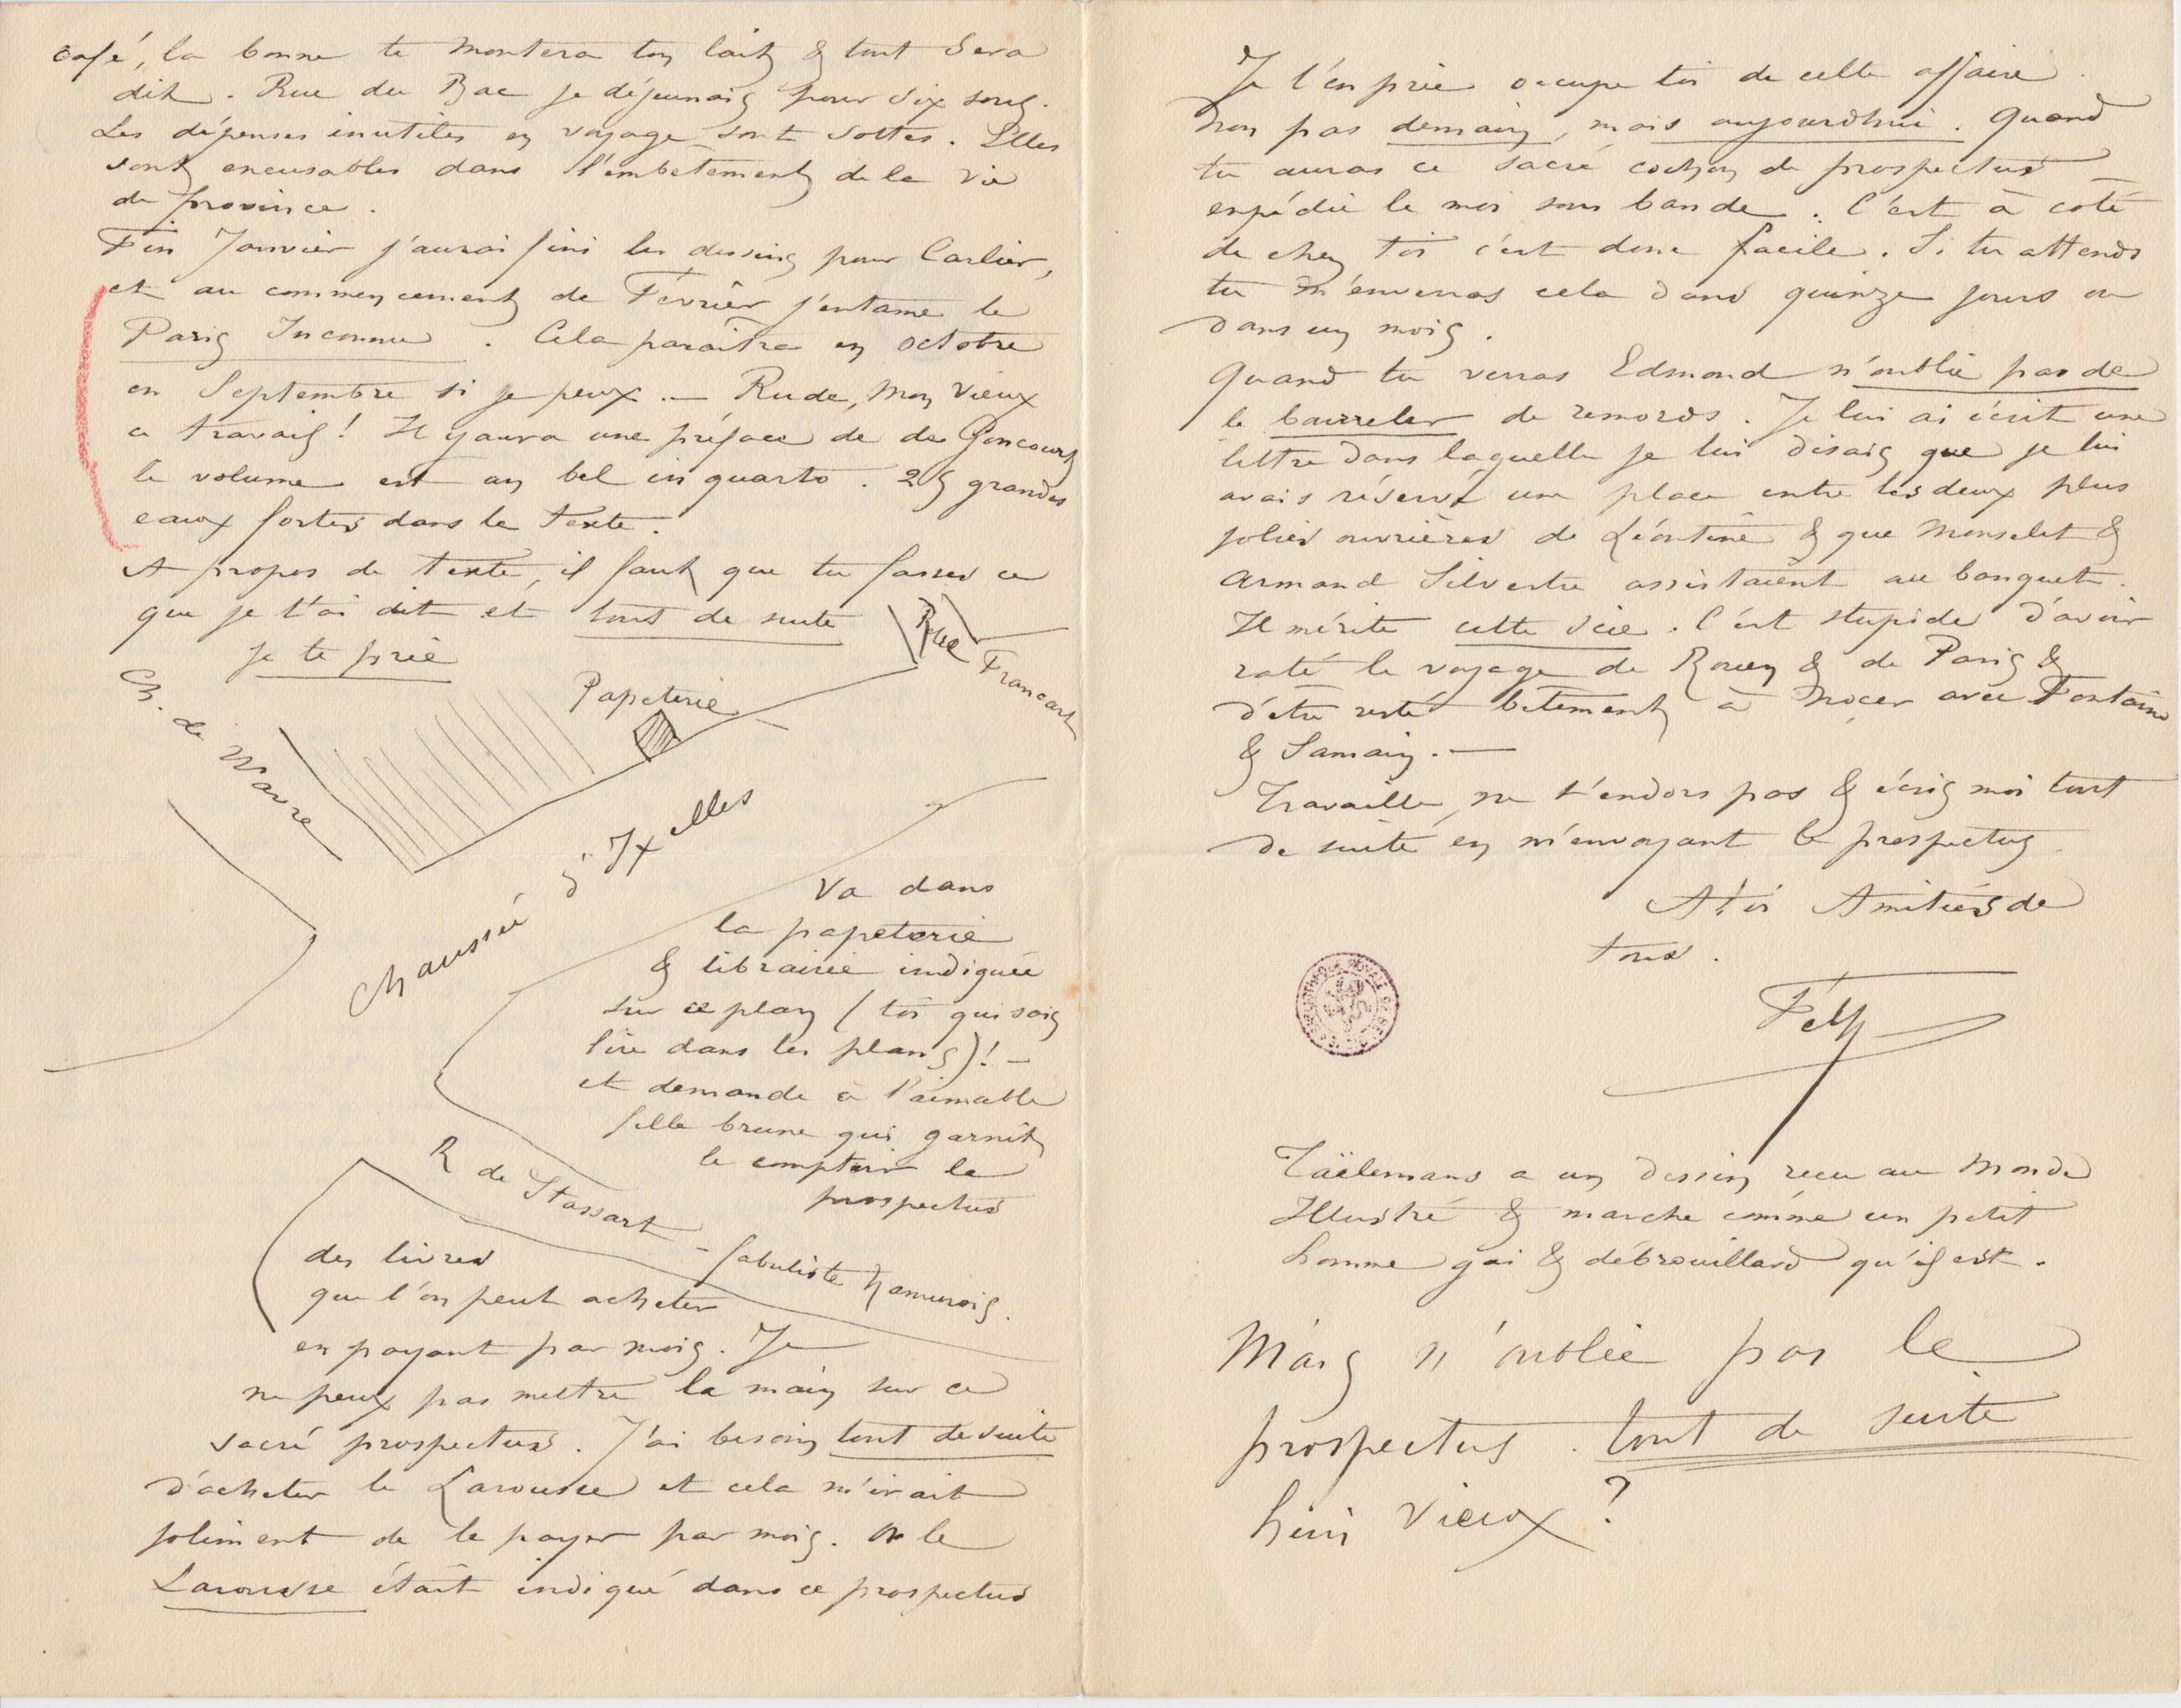 café, la bonne te montera ton lait & tout sera
dit. Rue du Bac je déjeunais pour six sous.
Les dépenses inutiles en voyage sont sottes. Elles
sont excusables dans l'embetement de la vie
de province.
Fin Janvier j'aurai fini les dessins pour Carlier,
et au commencement de Février j'entame le
Paris Inconnu. Cela paraitra en octobre
en Septembre si je peux. — Rude, mon vieux
ce travail! Il y aura une préface de de Goncourt
le volume est un bel in quarto. 25 grandes
eaux fortes dans le texte.
A propos de texte, il faut que tu fasses ce
que je t'ai dit et tout de suite
je te prie
Rue Francart
Papeterie
Ch. de Wavre
Chaussée d'Ixelles
Va dans
la papeterie
& librairie indiquée
sur ce plan (toi qui sais
lire dans les plans)! —
et demande à l'aimable
fille brune qui garnit
le comptoir le
prospectus
R de Stassart – fabuliste Namurois.
des livres
que l'on peut acheter
en payant par mois. Je
ne peux pas mettre la main sur ce
sacré prospectus. J'ai besoin tout de suite
d'acheter le Larousse et cela m'irait
joliment de le payer par mois. Or le
Larousse était indiqué dans ce prospectus
Je t'en prie occupe toi de cette affaire.
Non pas demain, mais aujourdhui. Quand
tu auras ce sacré cochon de prospectus —
expédie le moi sous bande. C'est à coté
de chez toi c'est donc facile. Si tu attends
tu m'enverras cela dans quinze jours ou
dans un mois.
Quand tu verras Edmond n'oublie pas de
le bourreler de remords. Je lui ai écrit une
lettre dans laquelle je lui disais que je lui
avais réservé une place entre les deux plus
jolies ouvrières de Léontine & que Monselet &
Armand Silvestre assistaient au banquet.
Il mérite cette scie. C'est stupide d'avoir
raté le voyage de Rouen & de Paris &
d'etre resté betement à nocer avec Fontaine
& Samain. —
Travaille, ne t'endors pas & écris moi tout
de suite en m'envoyant le prospectus.
A toi Amitiés de
tous.
Fély
Taëlemans a un dessin reçu au Monde
Illustré & marche comme un petit
homme gai & débrouillard qu'il est.
Mais n'oublie pas le
prospectus. tout de suite
hein vieux?